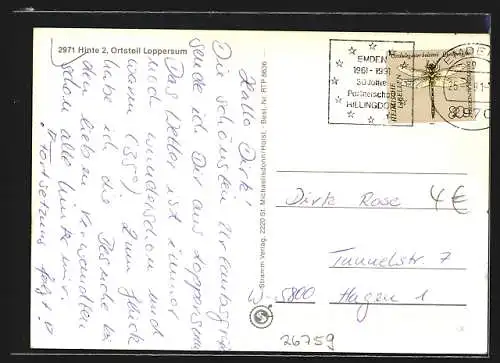 2971 Hinte 2, Ortsteil Loppersum
Hallo Dirk!
Die schönsten Urlaubsgrüße
sende ich Dir aus Loppersum.
Das Wetter ist immer
noch wunderschön und
warm (35°). Zum Glück
habe ich die Besuche bei
den lieben Verwandten
schon alle hinter mir.
Fortsetzung folgt!
Stramm-Verlag, 2220 St. Michaelisdonn/Holst. · Best.-Nr. RTP 6606
EMDEN
1961-1991
30 Jahre
Partnerschaft
HILLINGDON
80
Dirk Rose
4 €
Tunnelstr. 7
W-5800
Hagen 1
26759